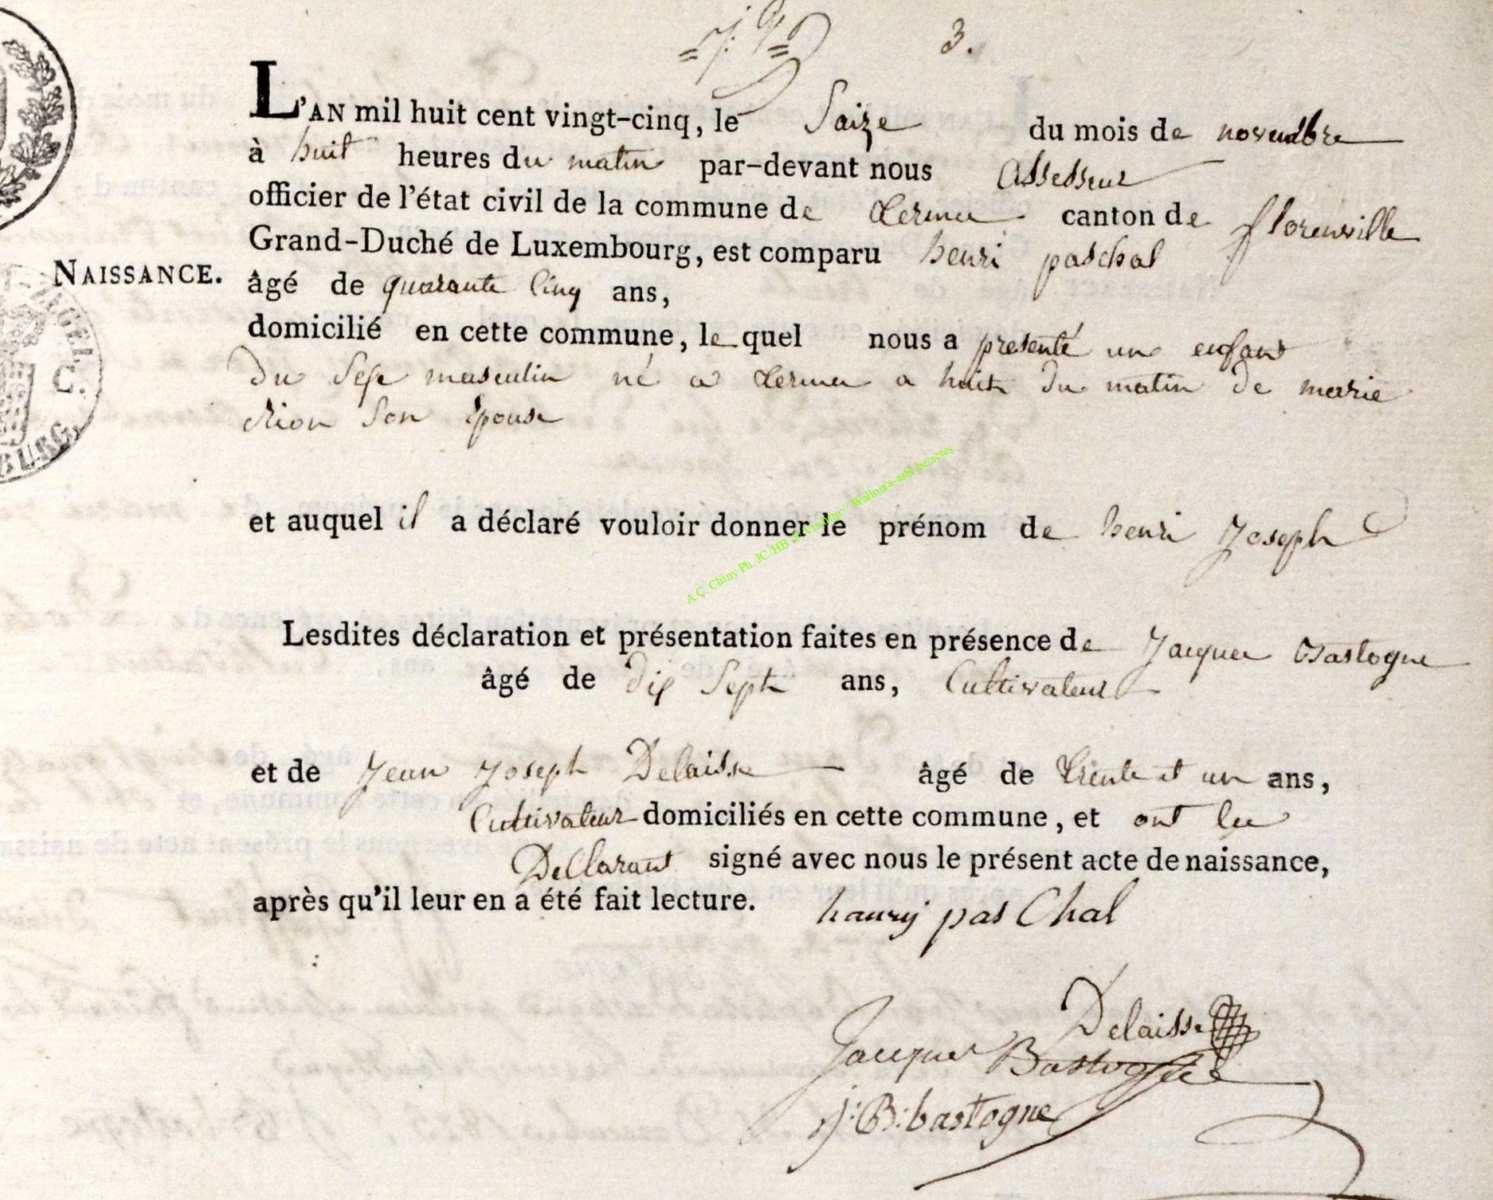 3.
L'AN mil huit cent vingt-cinq, le Saize du mois de novembre
à huit heures du matin par-devant nous Assesseur
officier de l'état civil de la commune de termes canton de florenville
Grand-Duché de Luxembourg, est comparu henri paschal
NAISSANCE.
âgé de quarante Cinq ans,
domicilié en cette commune, lequel nous a presenté un enfant
du Sexe masculin né a termes a huit du matin de marie
Son Epouse
et auquel il a déclaré vouloir donner le prénom de henri Joseph
Lesdites déclaration et présentation faites en présence de Jacques Bastogne
âgé de dix Sept ans, Cultivateur
et de Jean Joseph Delaisse âgé de trente et un ans,
Cultivateur domiciliés en cette commune, et ont les
Declarant signé avec nous le présent acte de naissance,
après qu'il leur en a été fait lecture. haury pas Chal
Delaisse
Jacques Bastogne
j: B: bastogne
C.
BURG.
A.C. Chiny Ph. JC.HB